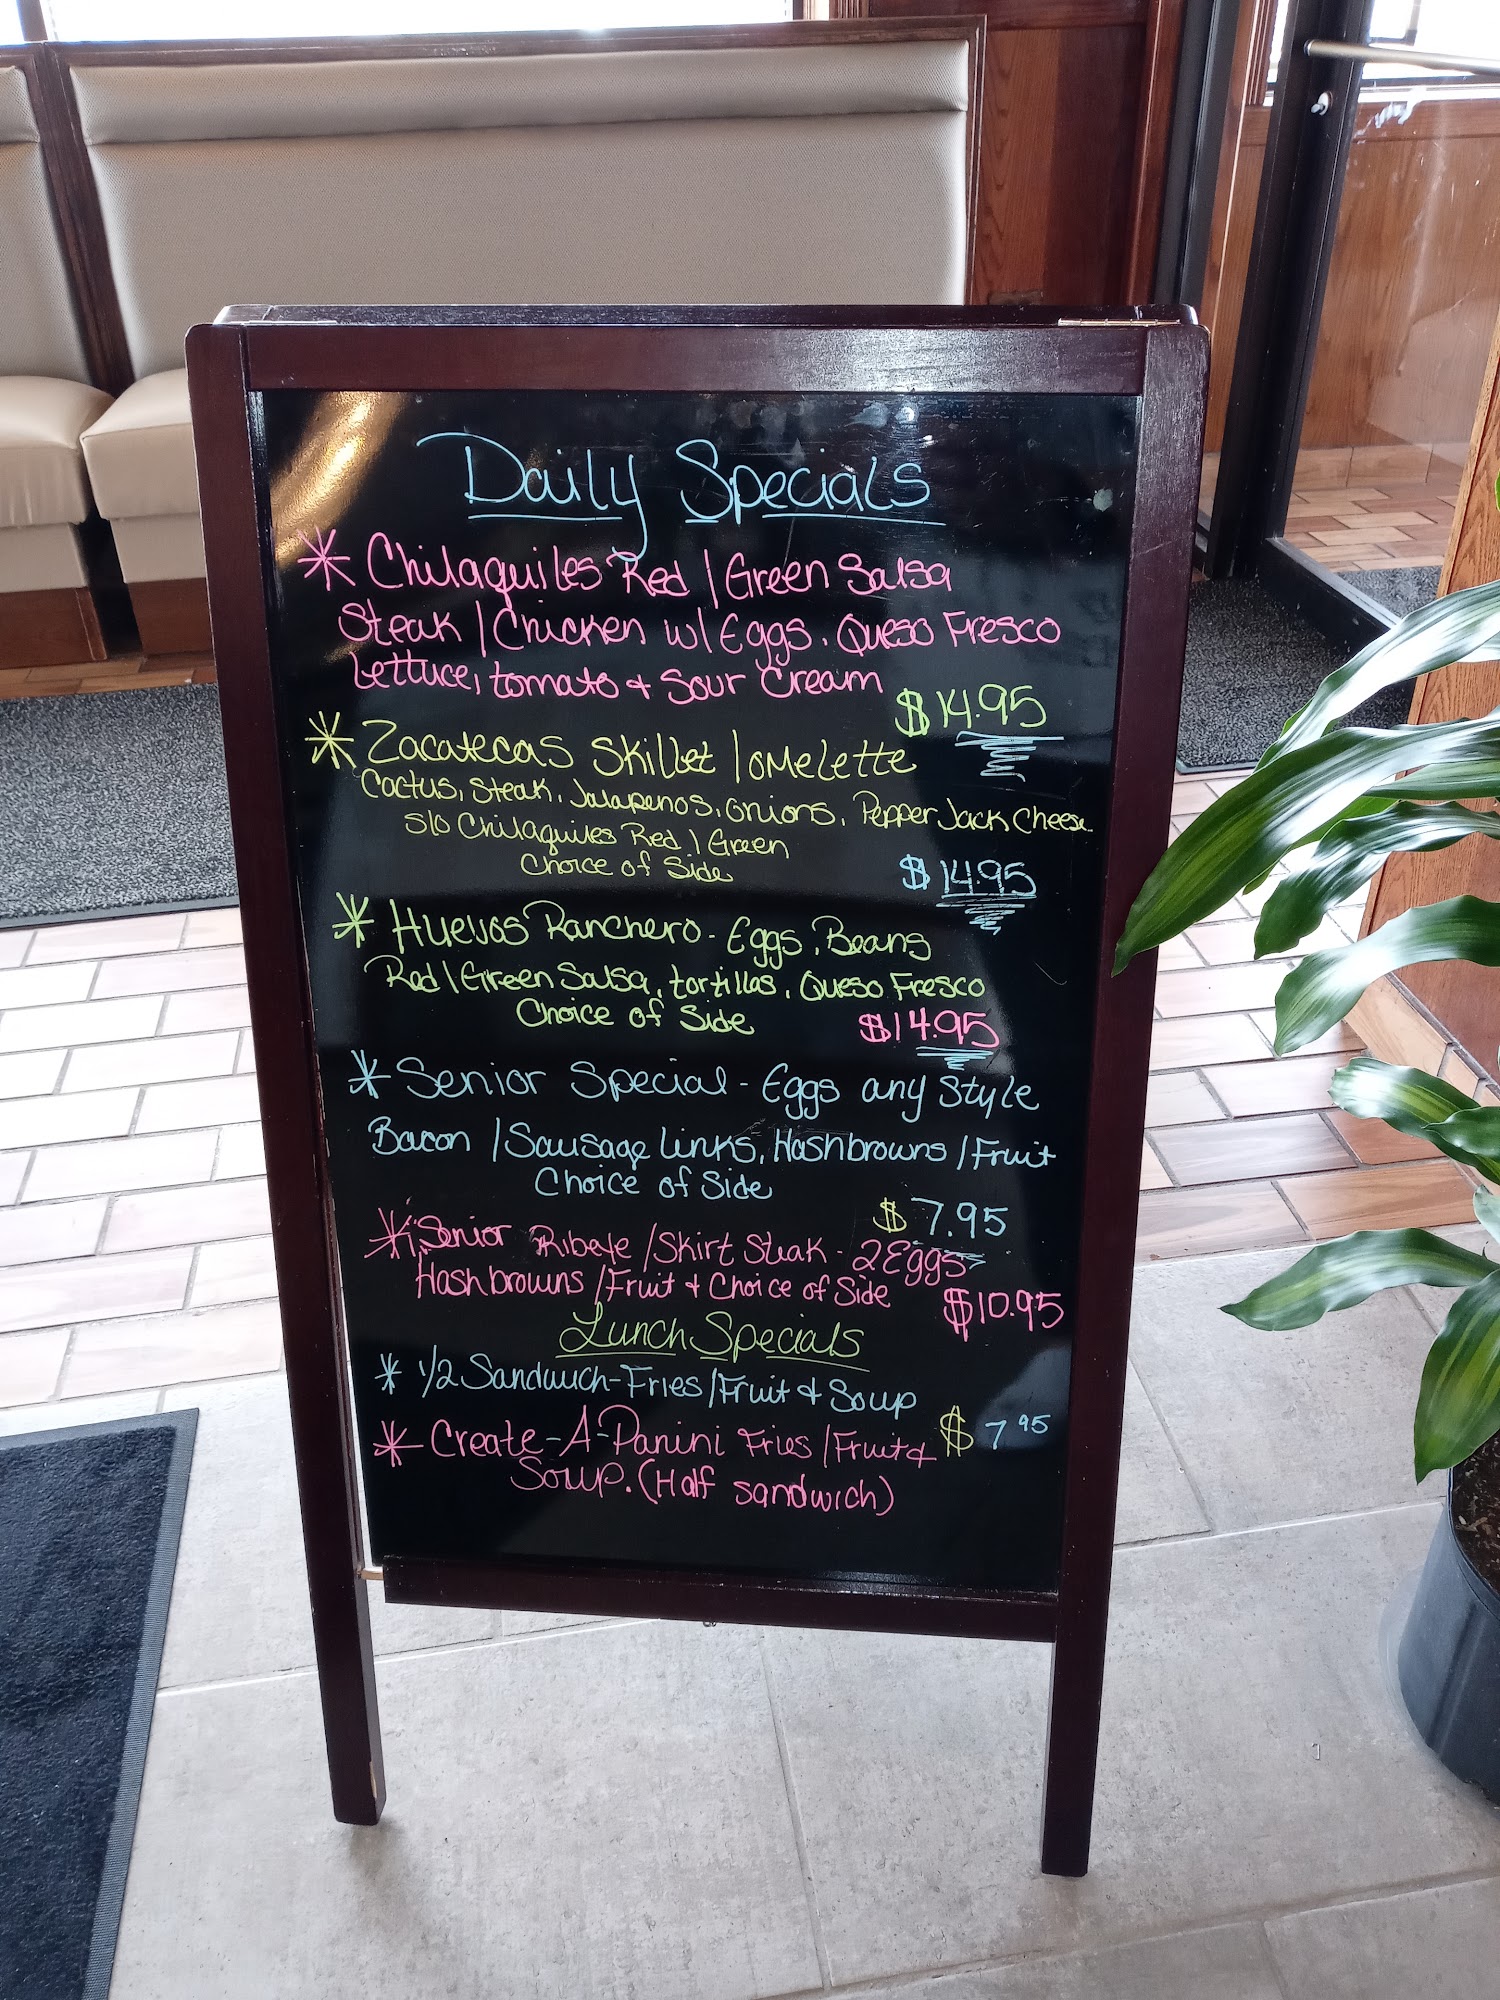 Daily Specials
* Chilaquiles Red / Green Salsa
Steak / Chicken w/ Eggs, Queso Fresco
Lettuce, tomato & Sour Cream
$14.95
* Zacatecas Skillet / omelette
Cactus, Steak, Jalapenos, onions, Pepper Jack Cheese
S/O Chilaquiles Red / Green
Choice of Side
$14.95
* Huevos Ranchero - Eggs, Beans
Red / Green Salsa, tortillas, Queso Fresco
Choice of Side
$14.95
* Senior Special - Eggs any Style
Bacon / Sausage Links, Hashbrowns / Fruit
Choice of Side
$7.95
* Senior Ribeye / Skirt Steak - 2 Eggs
Hashbrowns / Fruit & Choice of Side
$10.95
Lunch Specials
* 1/2 Sandwich - Fries / Fruit & Soup
$7.95
* Create-A-Panini Fries / Fruit &
Soup. (Half sandwich)